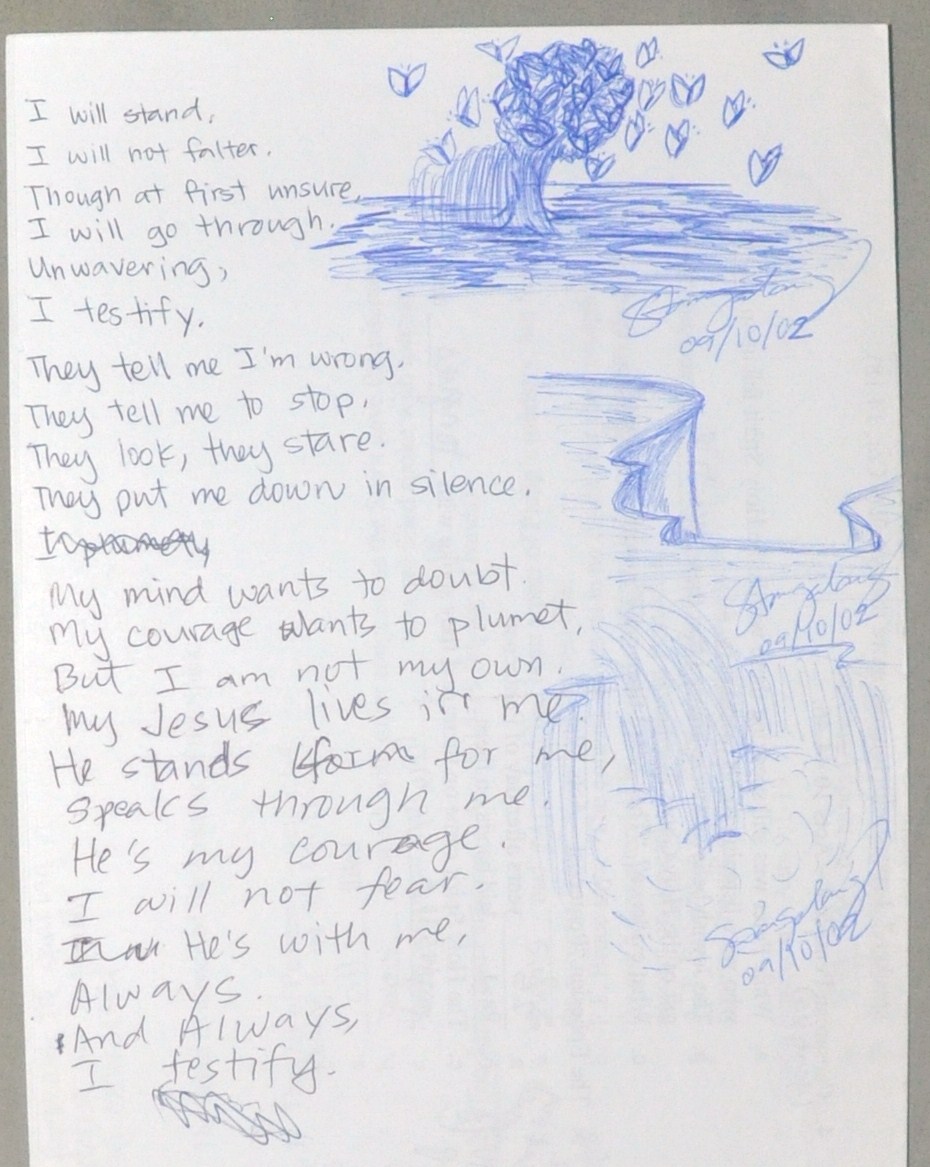 I will stand,
I will not falter.
Though at first unsure,
I will go through.
Unwavering,
I testify.
They tell me I'm wrong.
They tell me to stop.
They look, they stare.
They put me down in silence.
My mind wants to doubt.
My courage wants to plumet,
But I am not my own.
My Jesus lives in me.
He stands for me,
Speaks through me.
He's my courage.
I will not fear.
He's with me,
Always.
And Always,
I testify.
09/10/02
09/10/02
09/10/02